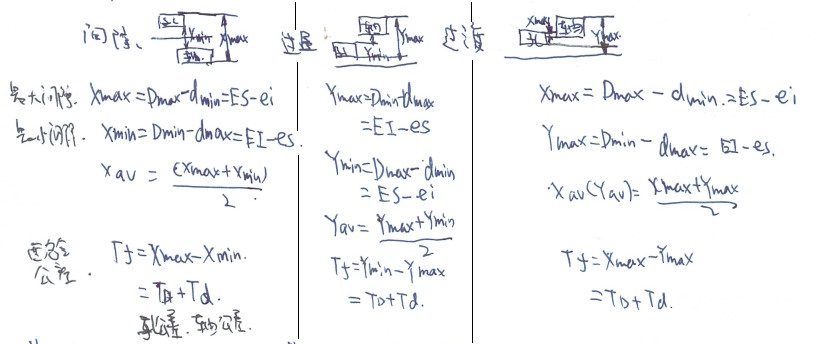 间隙 孔 Xmin Xmax 轴
最大间隙. Xmax=Dmax-dmin=ES-ei
最小间隙. Xmin=Dmin-dmax=EI-es.
Xav = (Xmax+Xmin)
2
配合
公差. Tf=Xmax-Xmin.
=TD+Td.
孔公差. 轴公差.
过盈 轴 孔 Ymin Ymax
Ymax=Dmin-dmax
=EI-es
Ymin=Dmax-dmin
=ES-ei
Yav=Ymax+Ymin
2
Tf=Ymin-Ymax
=TD+Td.
过渡 Xmax 孔 轴 Ymax.
Xmax=Dmax-dmin.=ES-ei
Ymax=Dmin-dmax=EI-es.
Xav(Yav)=Xmax+Ymax
2
Tf=Xmax-Ymax
=TD+Td.